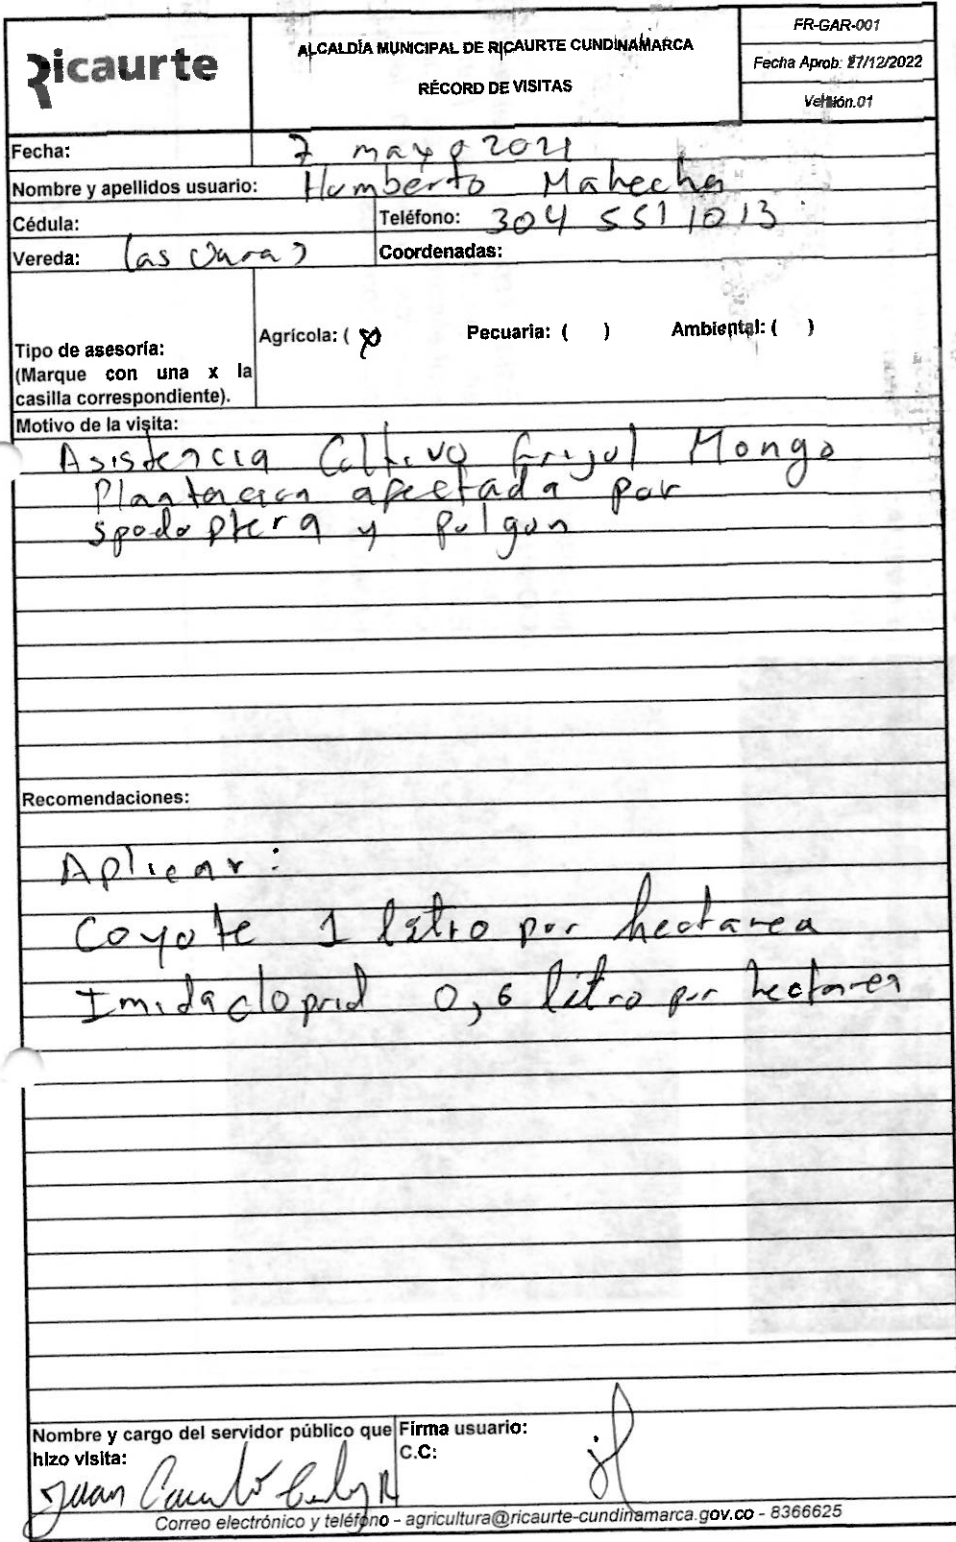 Ricaurte
ALCALDÍA MUNICIPAL DE RICAURTE CUNDINAMARCA
RÉCORD DE VISITAS
FR-GAR-001
Fecha Aprob: 27/12/2022
Versión.01
Fecha: 7 mayo 2021
Nombre y apellidos usuario: Humberto Mahecha
Cédula:
Teléfono: 304 551 1013
Vereda: Las Varas
Coordenadas:
Tipo de asesoría:
(Marque con una x la
casilla correspondiente).
Agrícola: ( x Pecuaria: ( ) Ambiental: ( )
Motivo de la visita:
Asistencia Cultivo frijol Mongo
Plantacion afectada por
spodoptera y pulgon
Recomendaciones:
Aplicar:
Coyote 1 litro por hectarea
Imidacloprid 0,6 litro por hectarea
Nombre y cargo del servidor público que
hizo visita:
Juan Camilo
Firma usuario:
C.C:
Correo electrónico y teléfono - agricultura@ricaurte-cundinamarca.gov.co - 8366625